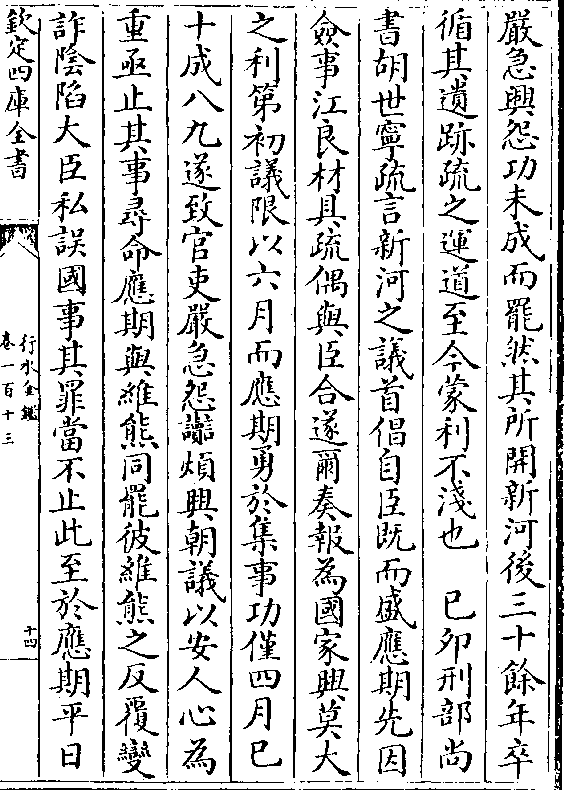 嚴急興怨功未成而罷然其所開新河後三十餘年卒
循其遺跡疏之運道至今蒙利不淺也　己夘刑部尚
書胡世寧疏言新河之議首倡自臣既而盛應期先因
僉事江良材具疏偶與臣合遂爾奏報為國家興莫大
之利第初議限以六月而應期勇於集事功僅四月已
十成八九遂致官吏嚴急怨讟煩興朝議以安人心為
重亟止其事尋命應期與維熊同罷彼維熊之反覆變
詐陰陷大臣私誤國事其罪當不止此至於應期平日
欽定四庫全書
行水金鑑
卷一百十三
十四